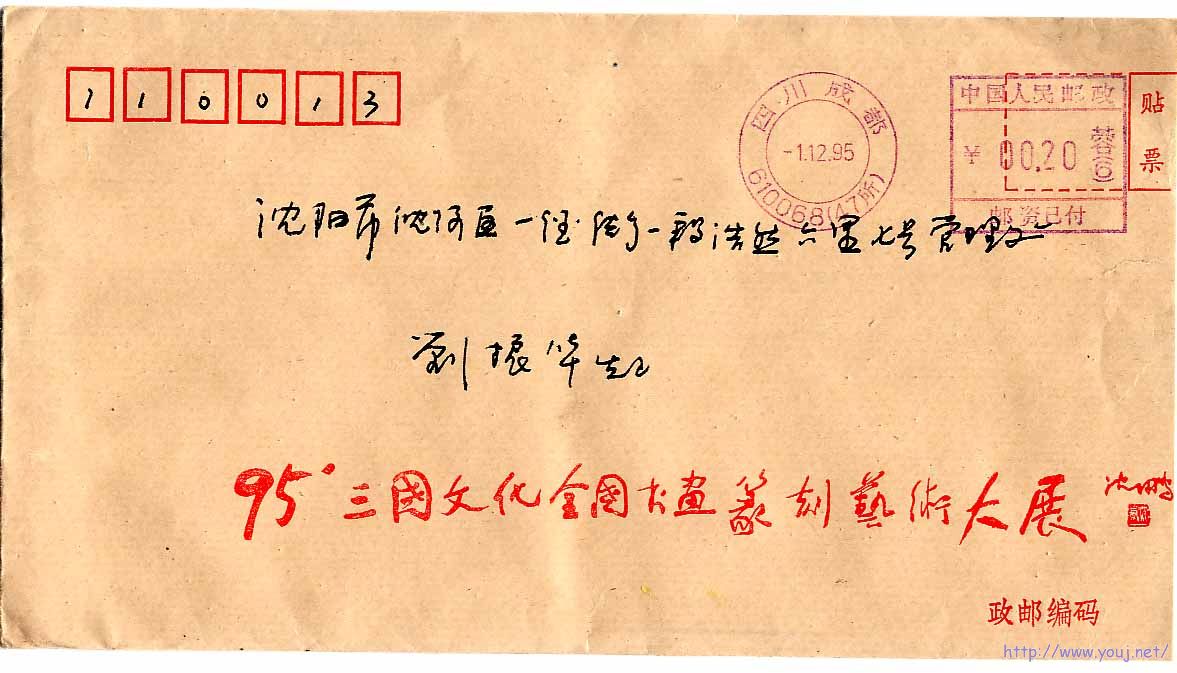 110013
四川成都
-1.12.95
610068(47所)
中国人民邮政
¥ 00.20 蓉(6)
邮资已付
贴票
沈阳市沈河区一经街一段浩然六里七号
劉振华
95'三國文化全國书画篆刻藝術大展
沈鹏
政邮编码
http://www.youj.net/